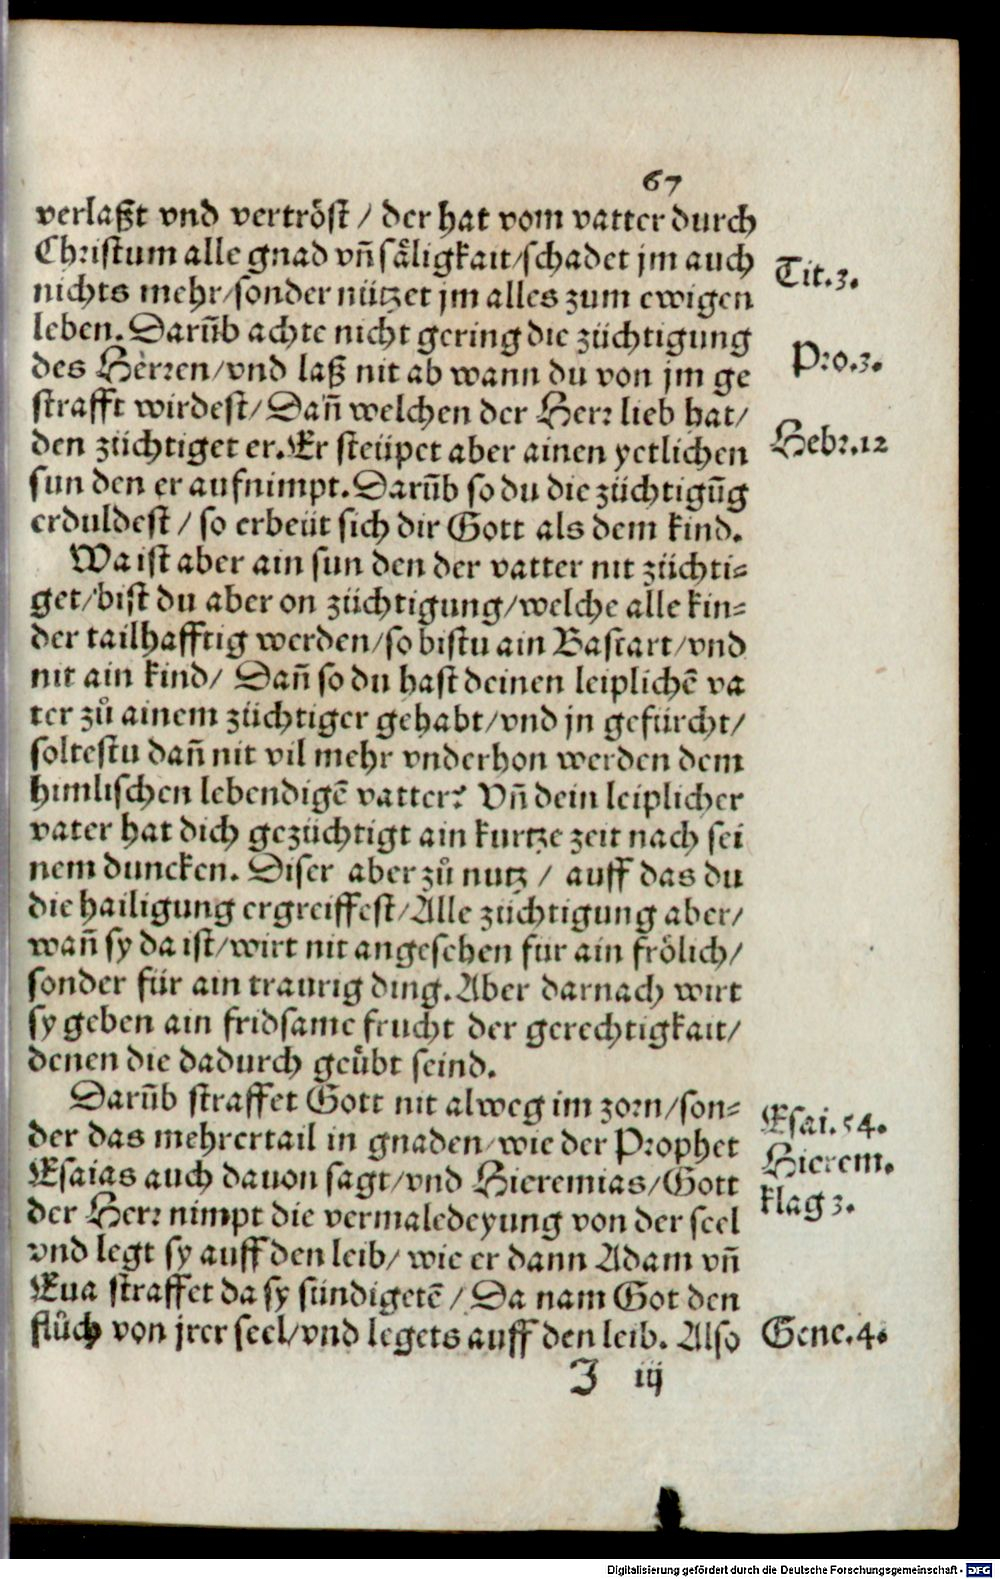 67
verlaßt vnd vertröst / der hat vom vatter durch
Christum alle gnad vñ säligkait/schadet jm auch
Tit.3.
nichts mehr/sonder nützet jm alles zum ewigen
leben. Darũb achte nicht gering die züchtigung
des Herren/vnd laß nit ab wann du von jm ge
Pro.3.
strafft wirdest/ Dañ welchen der Herr lieb hat/
den züchtiget er. Er steüpet aber ainen yetlichen
Hebr.12
sun den er aufnimpt. Darũb so du die züchtigũg
erduldest / so erbeüt sich dir Gott als dem kind.
Wa ist aber ain sun den der vatter nit züchti=
get/bist du aber on züchtigung/welche alle kin=
der tailhafftig werden/so bistu ain Bastart/vnd
nit ain kind/ Dañ so du hast deinen leiplichẽ va
ter zů ainem züchtiger gehabt/vnd jn gefürcht/
soltestu dañ nit vil mehr vnderhon werden dem
himlischen lebendigẽ vatter? Vñ dein leiplicher
vater hat dich gezüchtigt ain kurtze zeit nach sei
nem duncken. Diser aber zů nutz / auff das du
die hailigung ergreiffest/Alle züchtigung aber/
wañ sy da ist/wirt nit angesehen für ain frölich/
sonder für ain traurig ding. Aber darnach wirt
sy geben ain fridsame frucht der gerechtigkait/
denen die dadurch geübt seind.
Darũb straffet Gott nit alweg im zorn/son=
Esai.54.
der das mehrertail in gnaden/wie der Prophet
Hierem.
Esaias auch dauon sagt/vnd Hieremias/Gott
klag 3.
der Herr nimpt die vermaledeyung von der seel
vnd legt sy auff den leib/ wie er dann Adam vñ
Eua straffet da sy sündigetẽ / Da nam Got den
flůch von jrer seel/vnd legets auff den leib. Also
Gene.4.
J iij
Digitalisierung gefördert durch die Deutsche Forschungsgemeinschaft - DFG